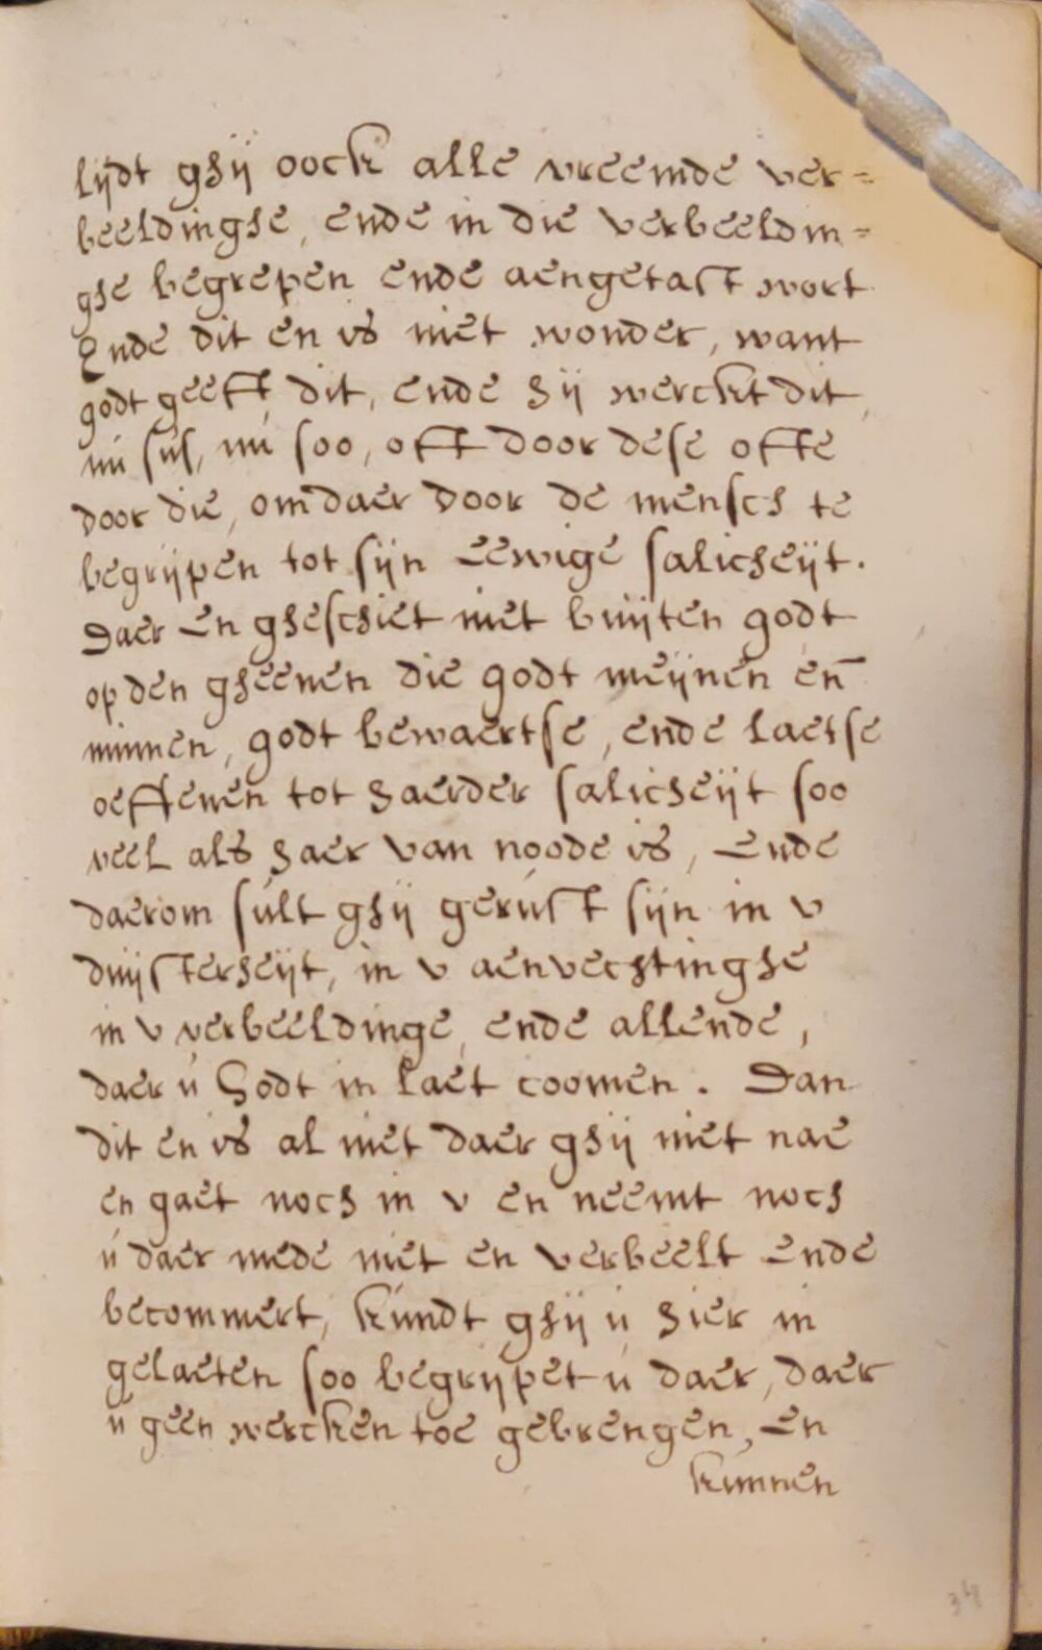 lijdt ghij oock alle vreemde ver=
beeldinghe, ende in die verbeeldin=
ghe begrepen ende aengetast wort
Ende dit en is niet wonder, want
godt geeft dit, ende hij werckt dit,
nú sús, nú soo, oft door dese ofte
door die, om daer door de mensch te
begrijpen tot sijn eewige salicheijt.
Daer en gheschiet niet buijten godt
op den gheenen die godt meijnen en̄
minnen, godt bewaertse, ende laetse
oeffenen tot haerder salicheijt soo
veel als haer van noode is, ende
daerom súlt ghij gerúst sijn in v
duijsterheijt, in v aenvechtinghe
in v verbeeldinge, ende allende,
daer ú Godt in laet coomen. Dan
dit en is al niet daer ghij niet nae
en gaet noch in v en neemt noch
ú daer mede niet en verbeelt ende
becommert, kúndt ghij ú hier in
gelaeten soo begrijpet ú daer, daer
ú geen wercken toe gebrengen, en
kúnnen
34